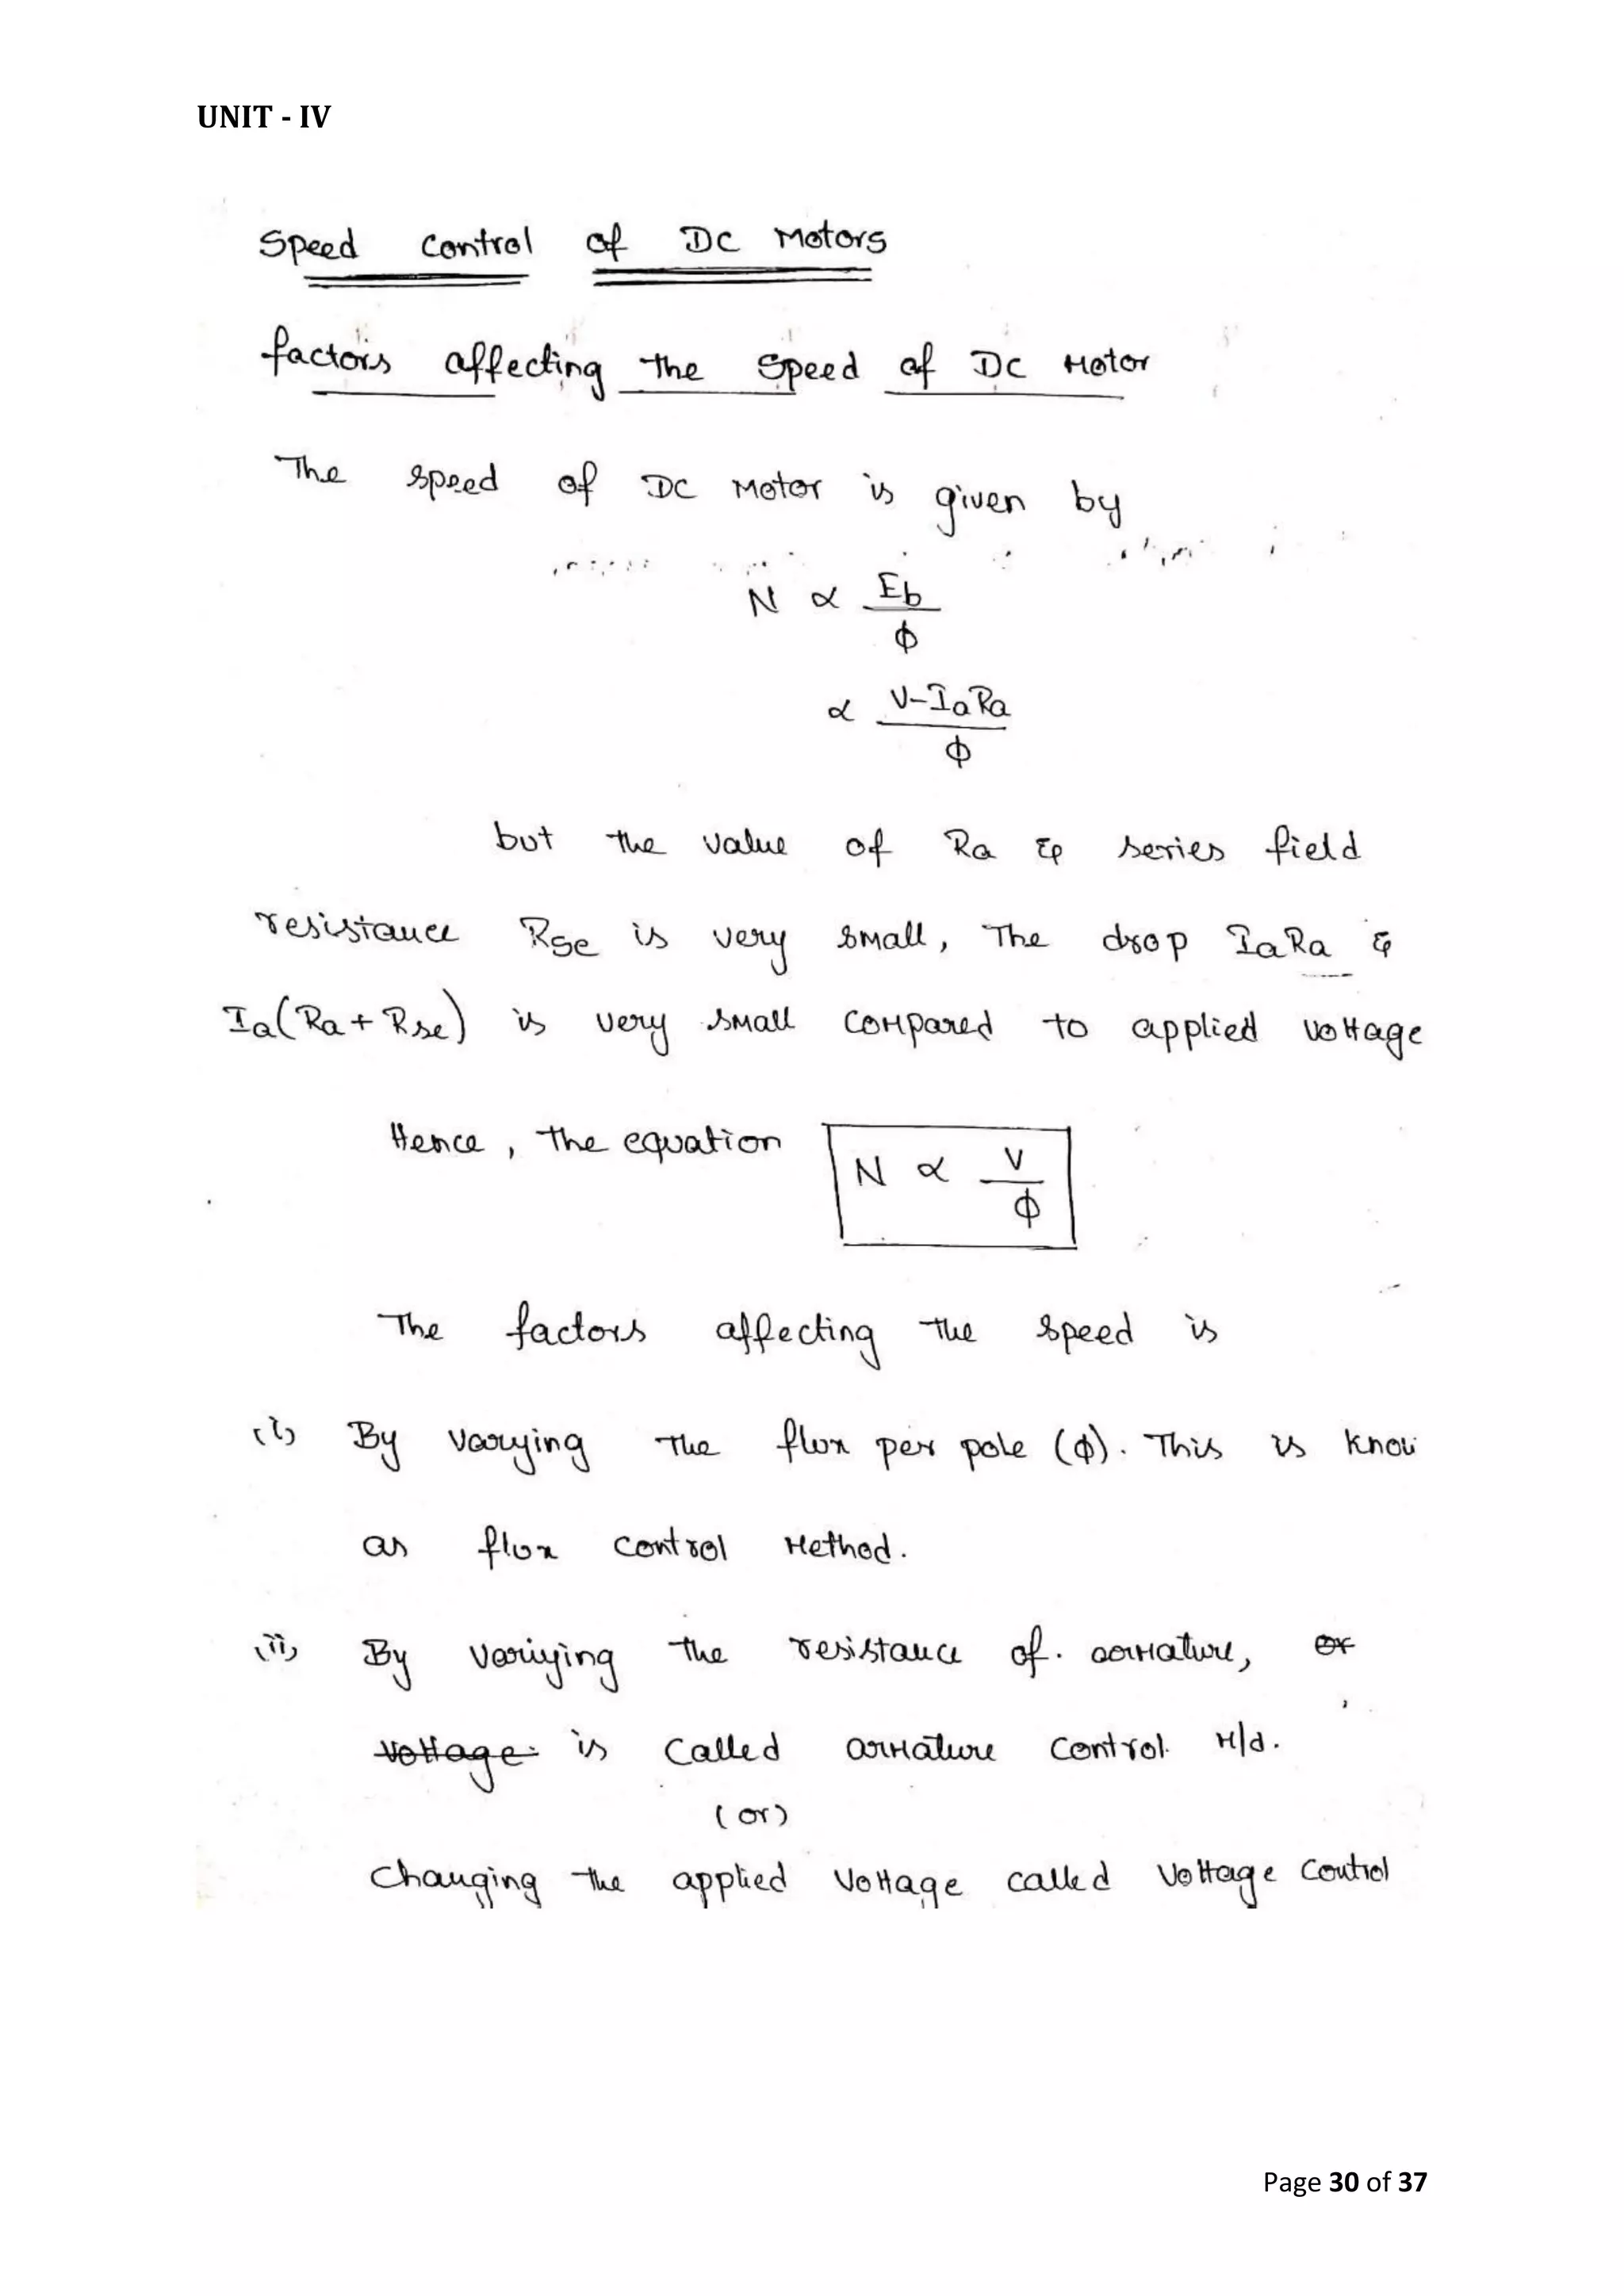 UNIT - IV
Speed control of DC Motors
factors affecting the speed of DC Motor
The speed of DC Motor is given by
N ∝ Eb/ϕ
∝ V-IaRa/ϕ
but the value of Ra & series field
resistance Rse is very small, The drop IaRa &
Ia(Ra+Rse) is very small compared to applied voltage
Hence, the equation N ∝ V/ϕ
The factors affecting the speed is
(i) By varying the flux per pole (ϕ). This is know
as flux control Method.
(ii) By variying the resistance of. armature, or
voltage is called armature control M/d.
(or)
changing the applied voltage called voltage control
Page 30 of 37